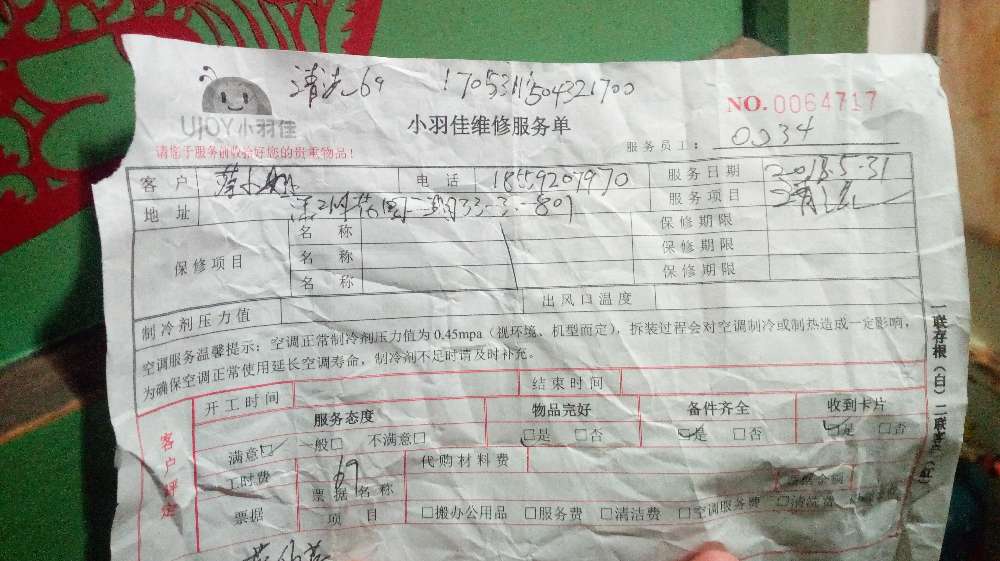 清洗69 1705311504321700
UJOY小羽佳
NO.0064717
小羽佳维修服务单
请您于服务前收拾好您的贵重物品!
服务员工: 0034
客户 电话 18559207970 服务日期 2018.5.31
地址 二期33-3-801 服务项目 清洗
保修项目 名称 保修期限
名称 保修期限
名称 保修期限
制冷剂压力值 出风口温度
空调服务温馨提示:空调正常制冷剂压力值为0.45mpa(视环境、机型而定),拆装过程会对空调制冷或制热造成一定影响,
为确保空调正常使用延长空调寿命,制冷剂不足时请及时补充。
开工时间 结束时间
客户评定
服务态度 物品完好 备件齐全 收到卡片
满意□ 一般□ 不满意□ □是 □否 □是 □否 □是 □否
工时费 69 代购材料费
票据 票据名称
项目 □搬办公用品 □服务费 □清洁费 □空调服务费 □清洗费
一联存根(白)二联客户(红)